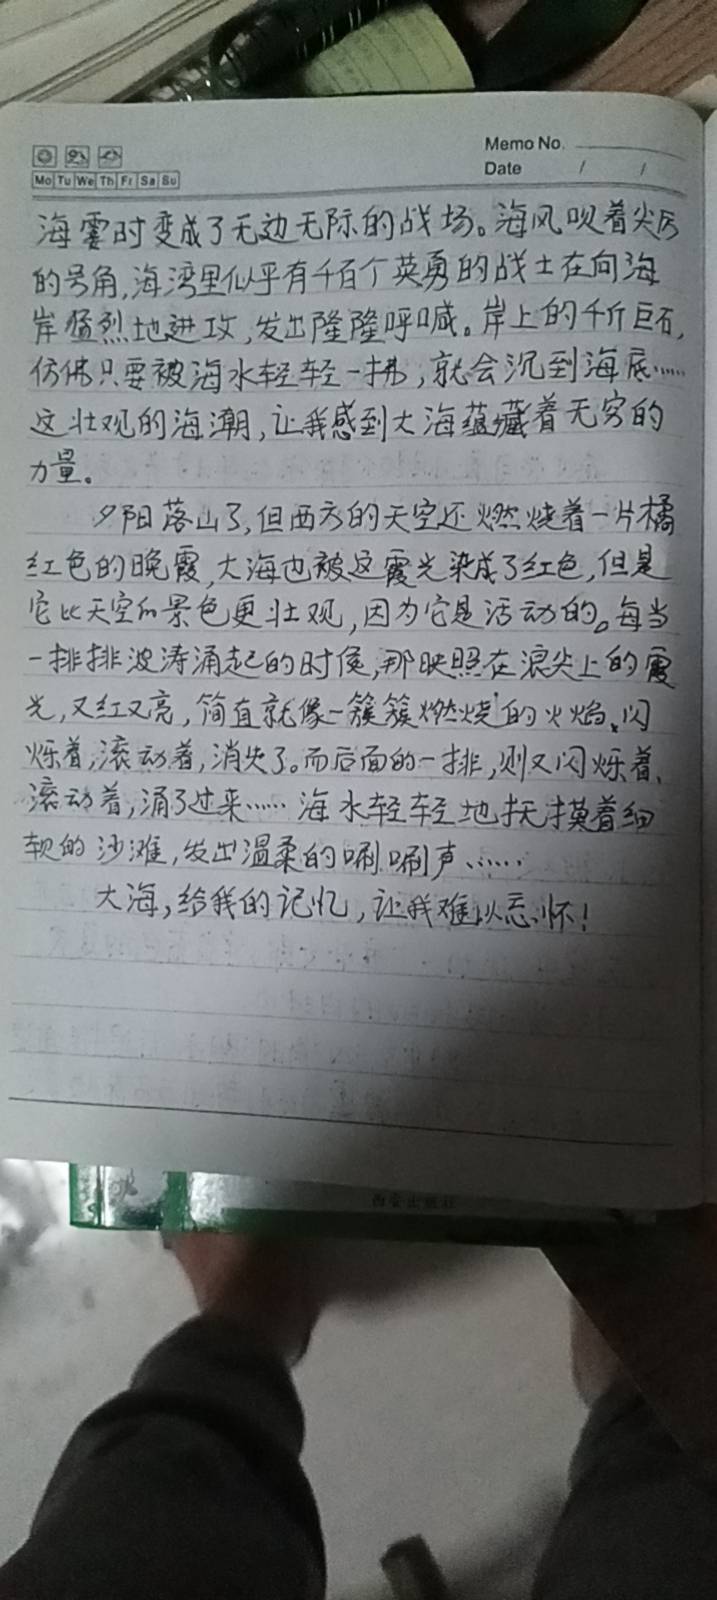 Memo No.
Date / /
Mo Tu We Th Fr Sa Su
海霎时变成了无边无际的战场。海风吹着尖厉
的号角,海湾里似乎有千百个英勇的战士在向海
岸猛烈地进攻,发出隆隆呼喊。岸上的千斤巨石,
仿佛只要被海水轻轻一拂,就会沉到海底……
这壮观的海潮,让我感到大海蕴藏着无穷的
力量。
夕阳落山了,但西方的天空还燃烧着一片橘
红色的晚霞,大海也被这霞光染成了红色,但是
它比天空的景色更壮观,因为它是活动的。每当
一排排波涛涌起的时候,那映照在浪尖上的霞
光,又红又亮,简直就像一簇簇燃烧的火焰,闪
烁着,滚动着,消失了。而后面的一排,则又闪烁着、
滚动着,涌了过来……海水轻轻地抚摸着细
软的沙滩,发出温柔的唰唰声……
大海,给我的记忆,让我难以忘怀!
西安出版社